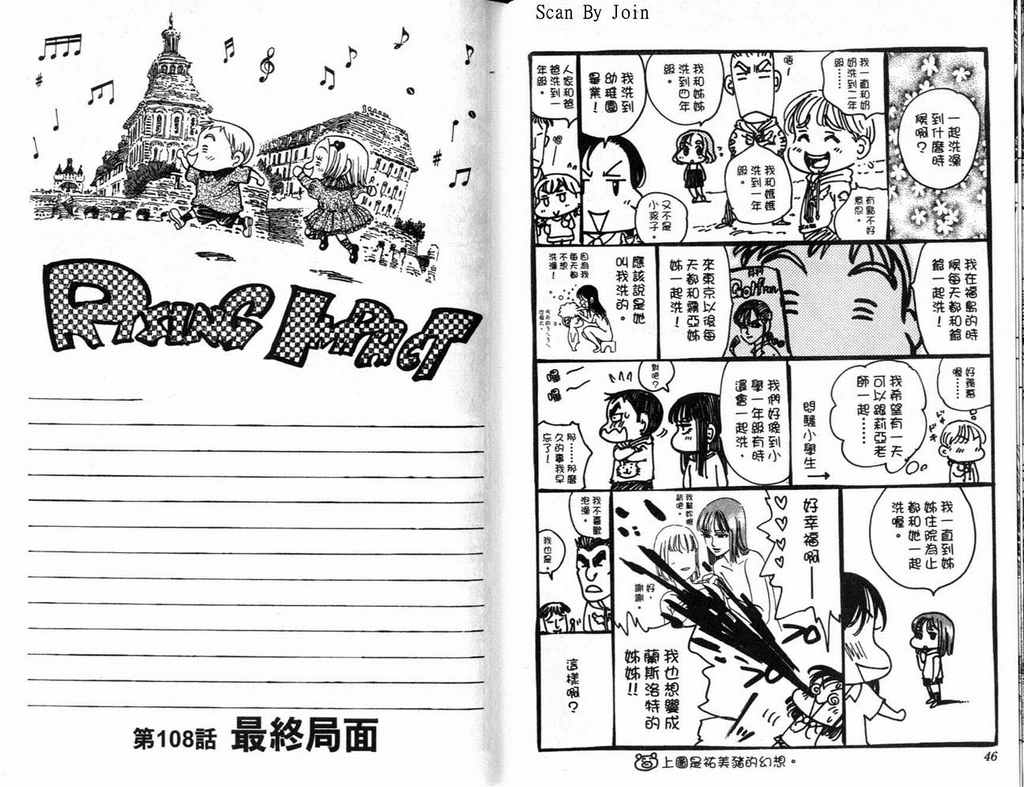 Scan By Join
一起洗澡
到什麼時
候啊？
我一直和奶
奶洗到二年
級……
有點不好
意思。
唔
我和媽媽
洗到一年
級。
我和姊姊
洗到四年
級。
又不是
小孩子。
我洗到
幼稚園
畢業！
人家和爸
爸洗到一
年級。
我在福島的時
候每天都和爺
爺一起洗！
Golf
來東京以後每
天都和霧亞姊
姊一起洗！
應該說是她
叫我洗的。
因為我
每天都
不想
洗澡！
好羨慕
喔……
我希望有一天
可以跟莉亞老
師一起……
悶騷小學生→
我們好像到小
學一年級有時
還會一起洗。
對吧？
嘿嘿
那……那麼
久的事我早
忘了！
我一直到姊
姊住院為止
都和她一起
洗喔。
好幸福啊——
好，
唰唰。
我也想變成
蘭斯洛特的
姊姊!!
我不喜歡
泡澡。
我也是。
這樣啊？
上圖是祐美豬的幻想。
46
RISING IMPACT
第108話 最終局面